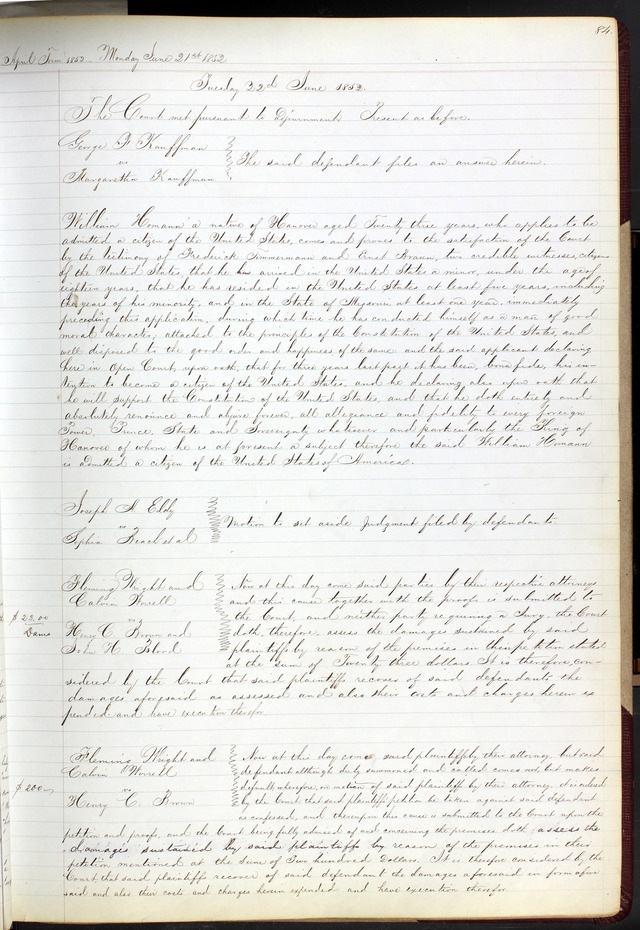 84.
April Term 1852. Monday June 21st 1852
Tuesday 22d June 1852.
The Court met pursuant to Adjournment Present as before.
George F Kauffman
vs
Margaretha Kauffman
The said defendant files an answer herein.
William Homann a native of Hanover aged Twenty three years, who applies to be
admitted a citizen of the United States, comes and proves to the satisfaction of the Court
by the testimony of Frederick Timmermann and Ernst Braun, two credible witnesses, citizens
of the United States, that he has arrived in the United States a minor, under the age of
eighteen years, that he has resided in the United States at least five years, including
the years of his minority, and in the State of Missouri at least one year, immediately
preceding this application, during which time he has conducted himself as a man of good
moral character, attached to the principles of the Constitution of the United States, and
well disposed to the good order and happiness of the same and the said applicant declaring
here in Open Court, upon oath, that for three years last past it has been, bona fide, his in-
tention to become a citizen of the United States. and he declaring also upon oath that
he will support the Constitution of the United States, and that he doth entirely and
absolutely renounce and abjure forever, all allegiance and fidelity to every foreign
Power, Prince, State and Sovereignty whatever and particularly the King of
Hanover of whom he is at present a subject therefore the said William Homann
is admitted a citizen of the United States of America.
Joseph A Eddy
vs
et al
Motion to set aside Judgment filed by defendants
Fleming Wright and
Calvin Worrell
vs
Henry C. Brown and
John H.
$23.00
Dams
Now at this day come said parties by their respective attorneys
and this cause together with the proofs is submitted to
the Court, and neither party requiring a Jury, the Court
doth, therefore, assess the damages sustained by said
plaintiffs by reason of the premises in their petition stated
at the sum of Twenty three dollars. It is therefore con-
sidered by the Court that said plaintiffs recover of said defendants the
damages aforesaid as assessed and also their costs and charges herein ex
pended and have execution therefor.
Fleming Wright and
Calvin Worrell
vs
Henry C. Brown
$200
Now at this day come said plaintiffs by their attorney but said
defendant although duly summoned and called comes not, but makes
default, wherefore, on motion of said plaintiffs by their attorney it is ordered
by the Court that said plaintiffs petition be taken against said defendant
as confessed, and thereupon the cause is submitted to the Court upon the
petition and proofs, and the Court being fully advised of and concerning the premises doth assess the
damages sustained by said plaintiffs by reason of the premises in their
petition mentioned at the Sum of Two hundred Dollars. It is therefore considered by the
Court, that said plaintiffs recover of said defendant the damages aforesaid in form afore
said and also their costs and charges herein expended and have execution therefor